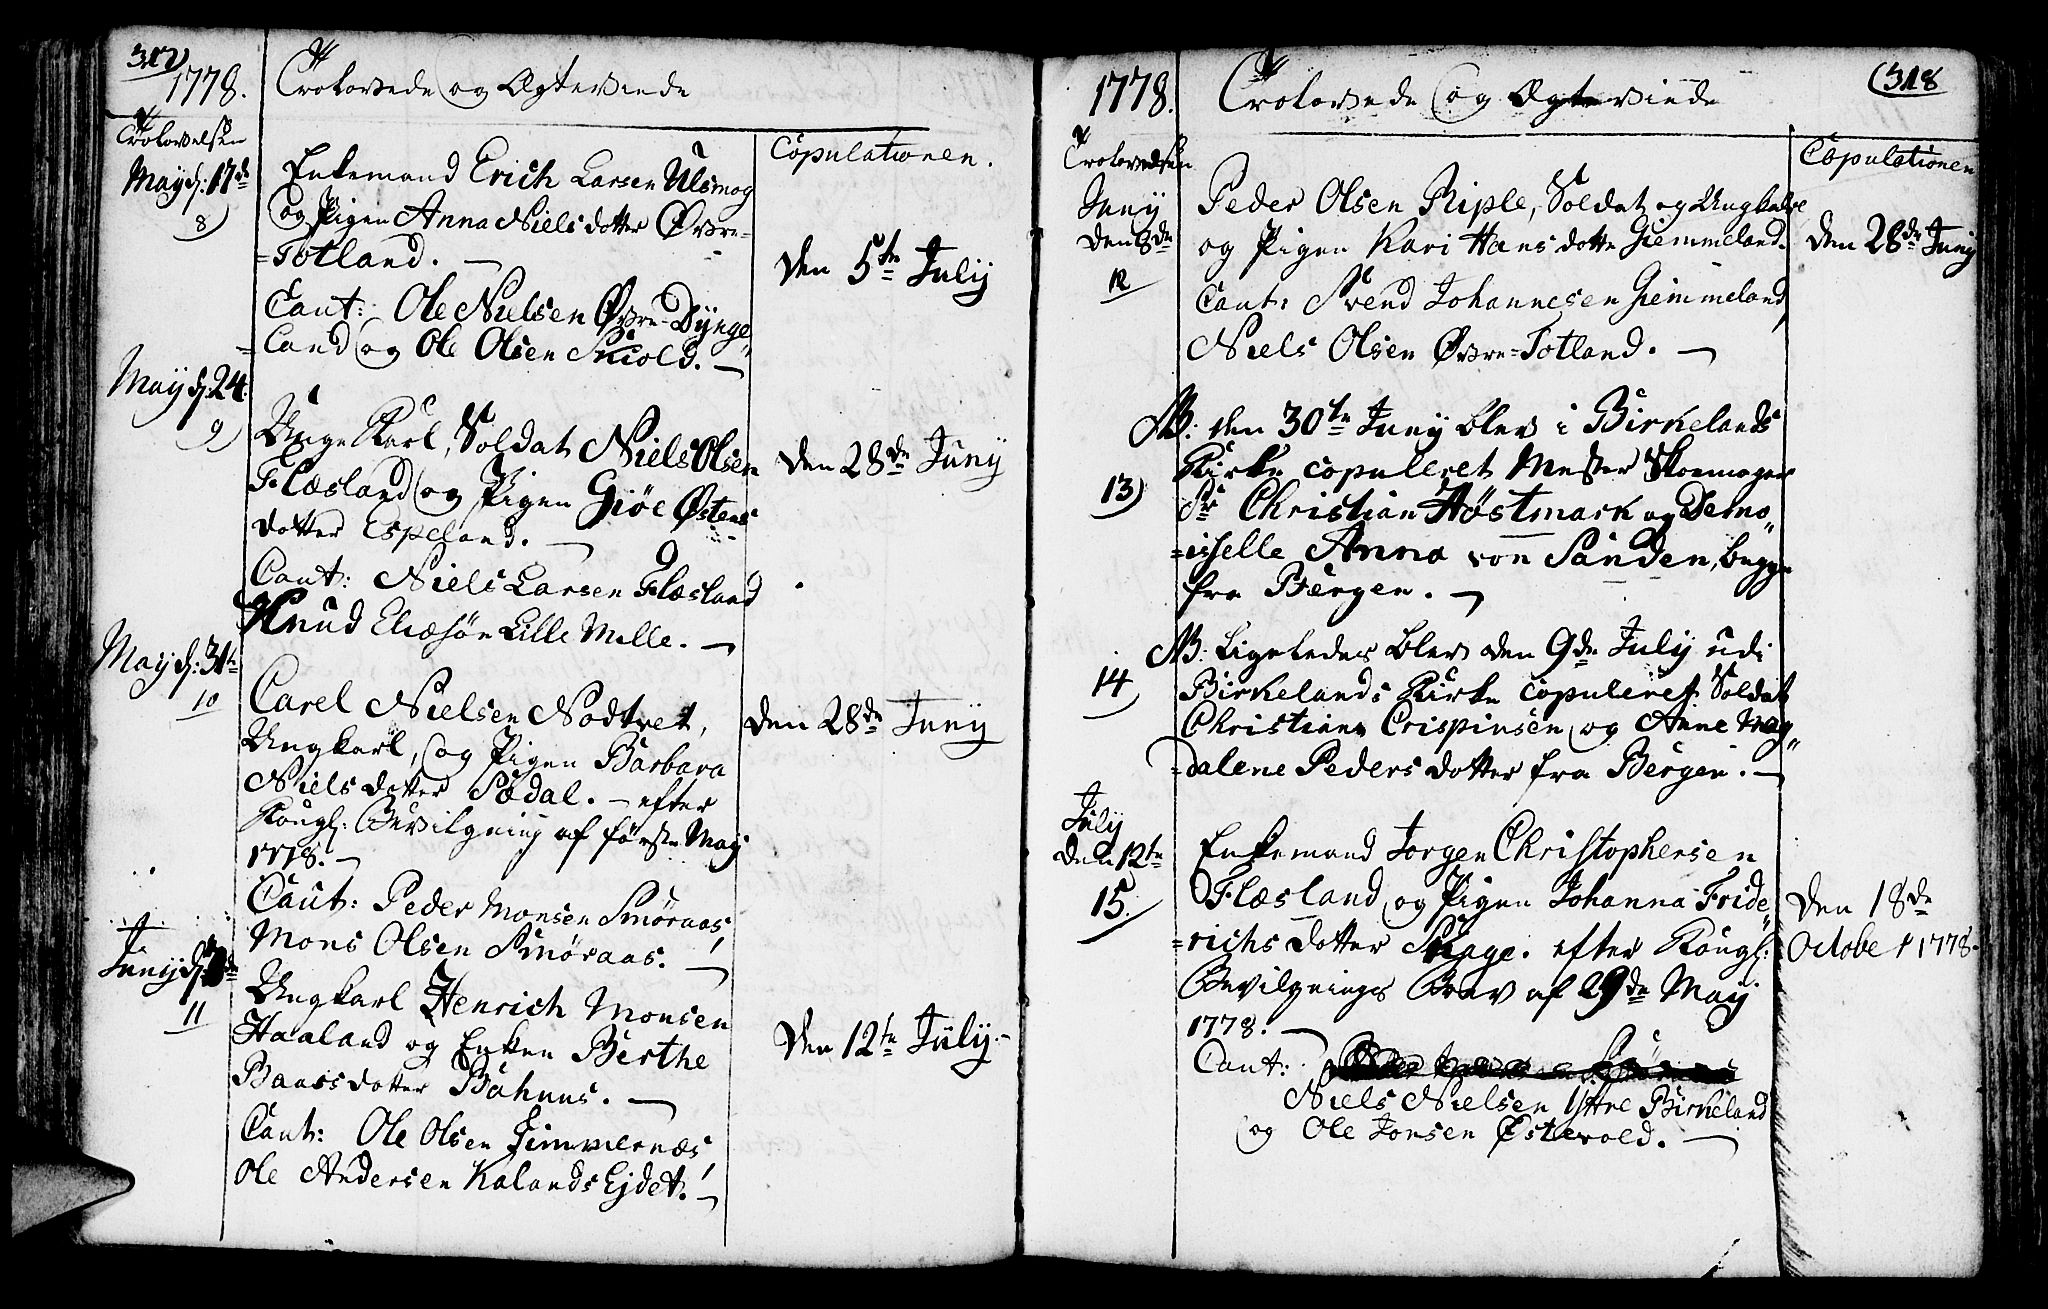 317)
1778. Troloved og Ægteviede
Trolovelsen
Copulationen.
Maij d: 17de
8)
Enkemand Erich Larsen Ulsmog
og Pigen Anna Nielsdotter Øvre-
=Totland. —
Den 5te Julij
Caut: Ole Nielsen Øvre-Dÿnge„
=land og Ole Olsen Skiold. —
Maij d: 24.
9)
Unge Karl, Soldat Niels Olsen
Flæsland og Pigen Giøe Østens
dotter Espeland. —
Den 28de Junij
Caut: Niels Larsen Flæsland
Knud Eliæsøn Lille Milde. —
Maij d: 31te
10
Carel Nielsen Nodtvet,
Ungkarl, og Pigen Barbara
Nielsdotter Sædal. — efter
Kongl: Bevilgning af første Maj
1778. —
Den 28de Junij
Caut: Peder Monsen Smøraas,
Mons Olsen Smøraas. —
Junij d:
11
Ungkarl Henrich Monsen
Haaland og Enken Berthe
Baarsdotter Bahuus. —
Den 12te Julij. —
Caut: Ole Olsen Himmernæs,
Ole Andersen Kalands Ejdet. —
1778. Trolovede og Ægteviede (318
Trolovelsen
Copulationen
Junij
den 8de
12
Peder Olsen Riple, Soldat og Ungkarl
og Pigen Kari Hansdotter Giemmeland.
Den 28de Junij
Caut: Svend Johannesen Giemmeland,
Niels Olsen Øvre=Totland. —
NB: den 30te Junij blev i Birkelands
13)
Kirke copuleret Mester Skoemager
Sr Christian Høstmark og Demo„
=iselle Anna von Sanden, begge
fra Bergen. —
NB: Ligeledes blev den 9de Julij udi
14)
Birkelands Kirke copuleret Soldat
Christian Crispinsen og Anne Mag„
=dalene Pedersdotter fra Bergen. —
Julij
den 12te
15.
Enkemand Jorgen Christophersen
Flæsland og Pigen Johanna Fride„
=richsdotter Skage. efter Kongl:
Bevilgnings Brev af 29de Maij
1778. —
Den 18de
Octobr 1778.
Caut:
Niels Nielsen Ÿttre Birkeland
og Ole Jonsen Østevold. —